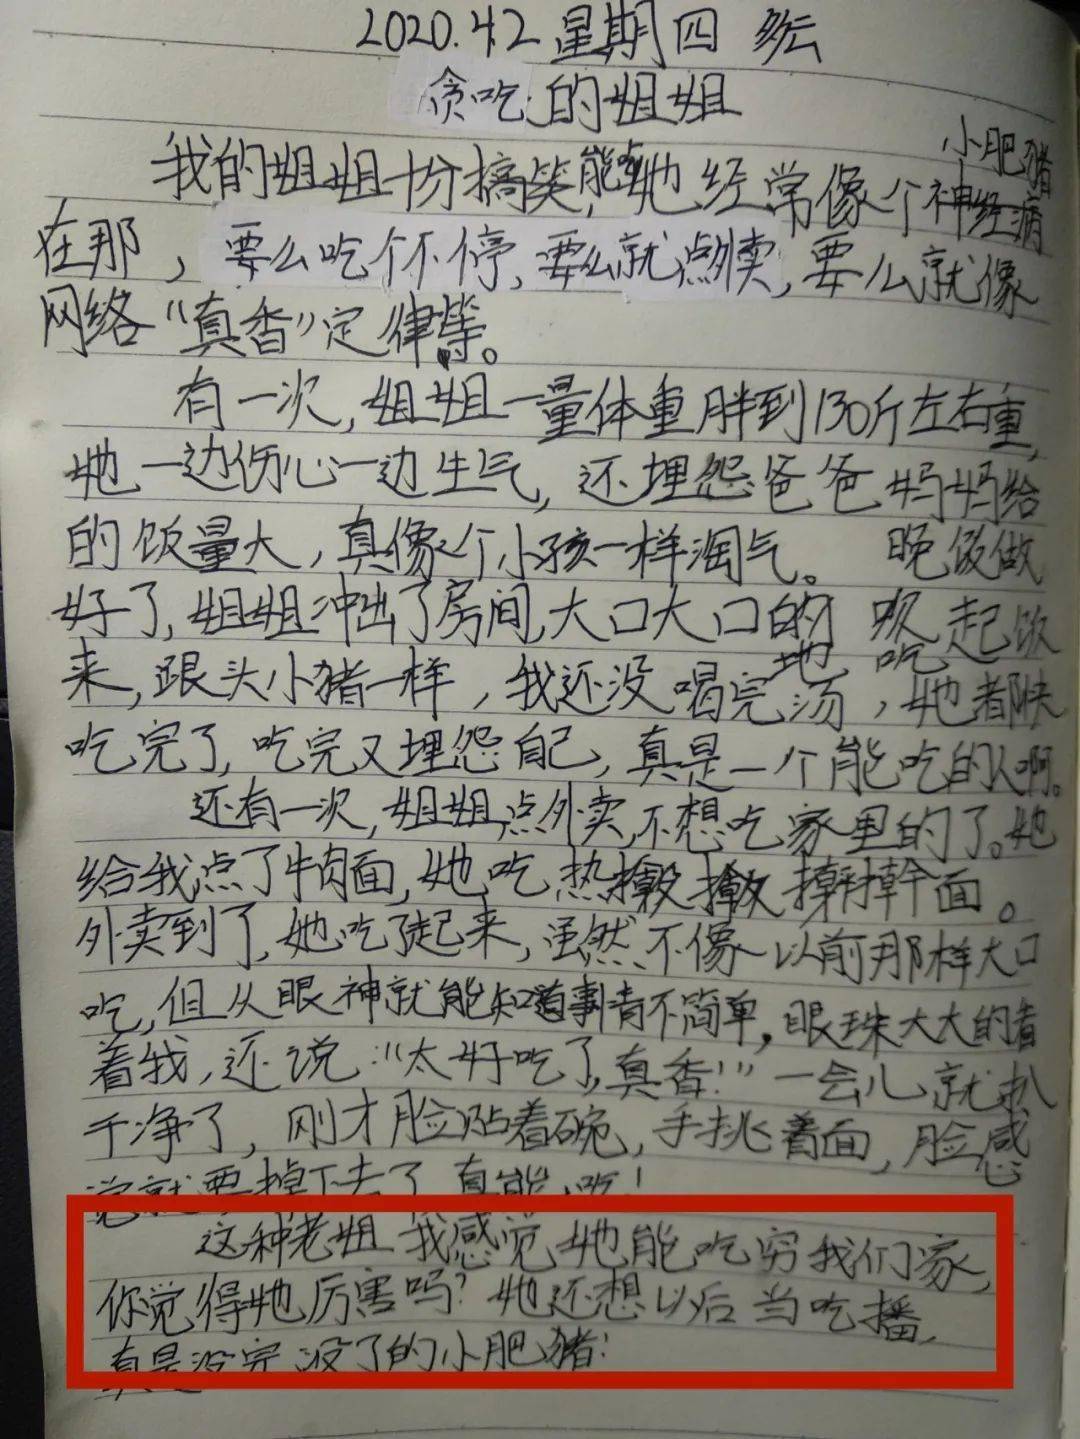 2020.4.2 星期四 多云
贪吃的姐姐
小肥猪
我的姐姐十分搞笑,能吃她经常像个神经病
在那,要么吃个不停,要么就点外卖,要么就像
网络“真香”定律等。
有一次,姐姐一量体重胖到130斤左右重,
她一边伤心一边生气,还埋怨爸爸妈妈给
的饭量大,真像个小孩一样淘气。晚饭做
好了,姐姐冲出了房间,大口大口的 吸起饭
地 吃
来,跟头小猪一样,我还没喝完汤,她都快
吃完了,吃完又埋怨自己,真是一个能吃的人啊。
还有一次,姐姐点外卖,不想吃家里的了。她
给我点了牛肉面,她吃热 面。
外卖到了,她吃了起来,虽然不像以前那样大口
吃,但从眼神就能知道事情不简单,眼珠大大的看
着我,还说:“太好吃了,真香!”一会儿就扒
干净了,刚才脸贴着碗,手挑着面,脸感
觉就要掉下去了,真能吃!
这种老姐我感觉她能吃穷我们家,
你觉得她厉害吗?她还想以后当吃播,
真是没完没了的小肥猪!